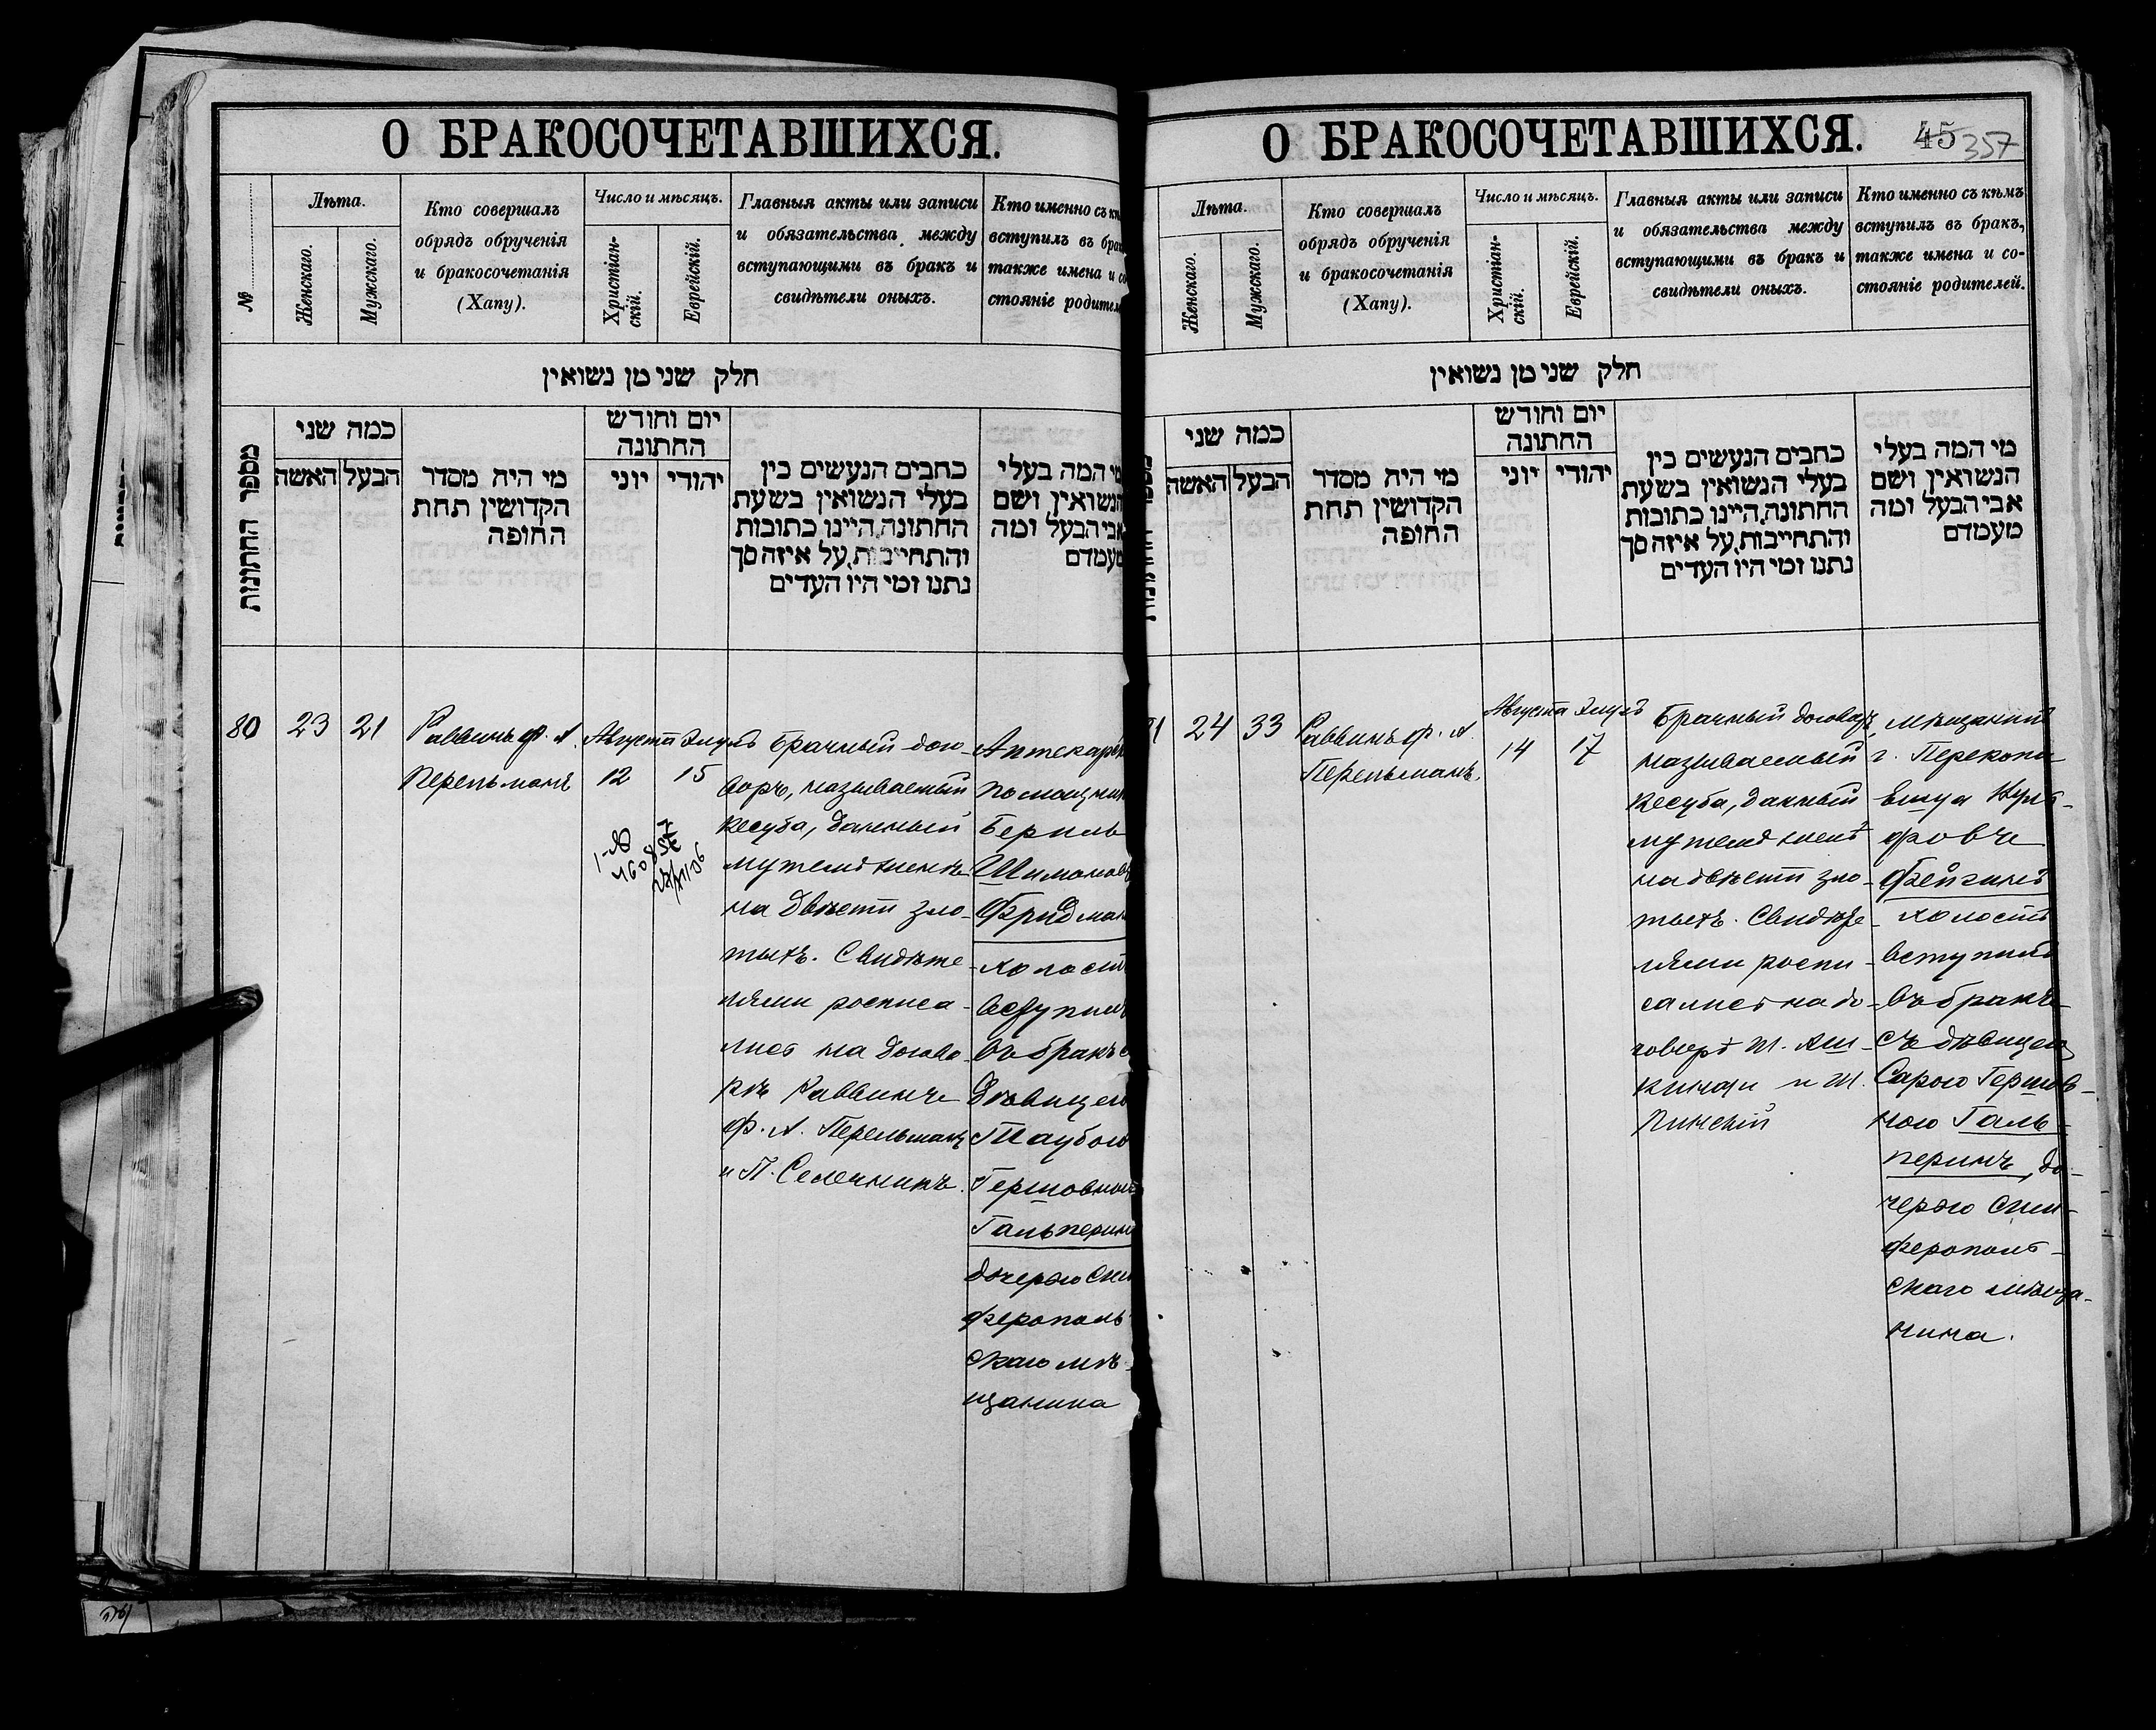 О БРАКОСОЧЕТАВШИХСЯ.
№
Лѣта.
Женскаго.
Мужскаго.
Кто совершалъ
обрядъ обрученія
и бракосочетанія
(Хапу).
Число и мѣсяцъ.
Христіан-
скій.
Еврейскій.
Главныя акты или записи
и обязательства между
вступающими въ бракъ и
свидѣтели оныхъ.
Кто именно съ кѣ
вступилъ въ брак
также имена и со
стояніе родител
חלק שני מן נשואין
מספר החתונות
כמה שני
האשה
הבעל
מי היה מסדר
הקדושין תחת
החופה
יום וחודש
החתונה
יוני
יהודי
כתבים הנעשים בין
בעלי הנשואין בשעת
החתונה, היינו כתובות
והתחייבות, על איזה סך
נתנו ומי היו העדים
מי המה בעלי
הנשואין ושם
אבי הבעל ומה
מעמדם
80
23
21
Раввинъ Ф. А.
Перельманъ
Августа Элулъ
12 15
Брачный дого-
воръ, называемый
кесуба, данный
мужемъ женѣ
на двѣсти зло-
тыхъ. Свидѣте-
лями росписа-
лись на догово-
рѣ Раввинъ
Ф. А. Перельманъ
и П. Селечникъ.
Аптекарск
помощник
Бериль
Шимонов
Фридман
холост
вступилъ
въ бракъ с
дѣвицею
Таубою
Гершовною
Гальперин
дочерью Сим
ферополь
скаго мѣ-
щанина
О БРАКОСОЧЕТАВШИХСЯ.
45 357
Лѣта.
Женскаго.
Мужскаго.
Кто совершалъ
обрядъ обрученія
и бракосочетанія
(Хапу).
Число и мѣсяцъ.
Христіан-
скій.
Еврейскій.
Главныя акты или записи
и обязательства между
вступающими въ бракъ и
свидѣтели оныхъ.
Кто именно съ кѣмъ
вступилъ въ бракъ,
также имена и со-
стояніе родителей.
חלק שני מן נשואין
כמה שני
האשה
הבעל
מי היה מסדר
הקדושין תחת
החופה
יום וחודש
החתונה
יוני
יהודי
כתבים הנעשים בין
בעלי הנשואין בשעת
החתונה, היינו כתובות
והתחייבות, על איזה סך
נתנו ומי היו העדים
מי המה בעלי
הנשואין ושם
אבי הבעל ומה
מעמדם
1
24
33
Раввинъ Ф. А.
Перельманъ.
Августа Элулъ
14 17
Брачный договоръ,
называемый
кесуба, данный
мужемъ женѣ
на двѣсти зло-
тыхъ. Свидѣте-
лями роспи-
сались на до-
говорѣ М. Аш-
кинази и М.
Пинскій
Мѣщанинъ
г. Перекопа
фовъ
Фейгинъ
холостъ
вступилъ
въ бракъ
съ дѣвицею
Сарою Гершов-
ною Галь-
перинъ, до-
черью Сим-
ферополь-
скаго мѣща-
нина.